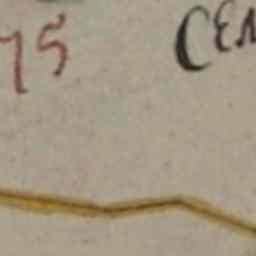 75 CEN